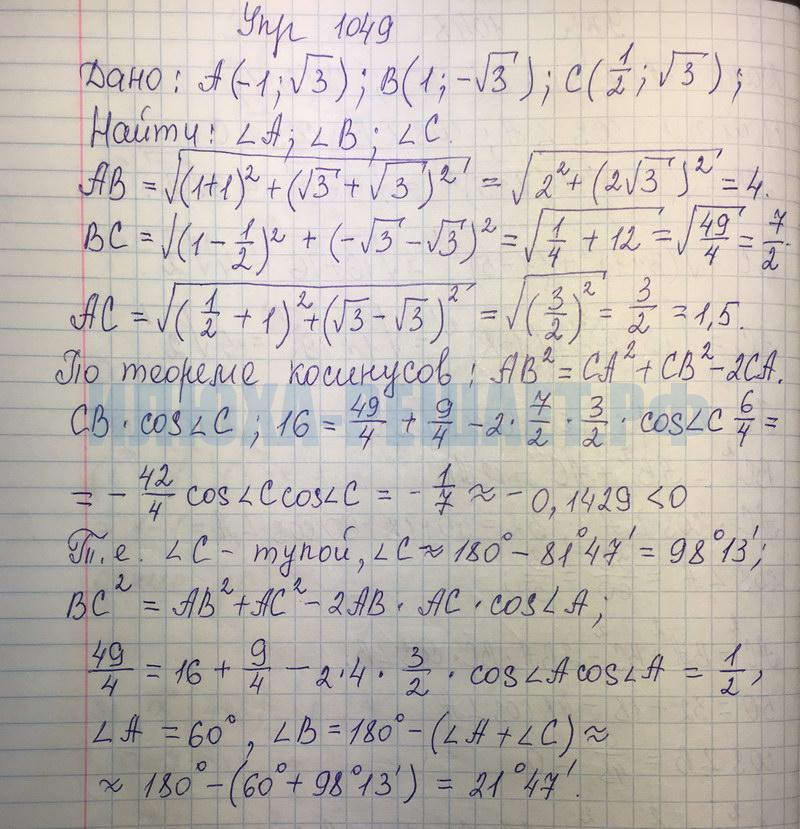 Упр 1049
Дано: A(-1; √3); B(1; -√3); C(1/2; √3);
Найти: ∠A; ∠B; ∠C.
AB = √((1+1)² + (√3 + √3)²) = √(2² + (2√3)²) = 4.
BC = √((1 - 1/2)² + (-√3 - √3)²) = √(1/4 + 12) = √(49/4) = 7/2.
AC = √((1/2 + 1)² + (√3 - √3)²) = √((3/2)²) = 3/2 = 1,5.
По теореме косинусов; AB² = CA² + CB² - 2CA.
CB · cos∠C; 16 = 49/4 + 9/4 - 2 · 7/2 · 3/2 · cos∠C 6/4 =
= - 42/4 cos∠C cos∠C = - 1/7 ≈ - 0,1429 < 0
Т.е. ∠C - тупой, ∠C ≈ 180° - 81°47' = 98°13';
BC² = AB² + AC² - 2AB · AC · cos∠A;
49/4 = 16 + 9/4 - 2·4 · 3/2 · cos∠A cos∠A = 1/2,
∠A = 60°, ∠B = 180° - (∠A + ∠C) ≈
≈ 180° - (60° + 98°13') = 21°47'.